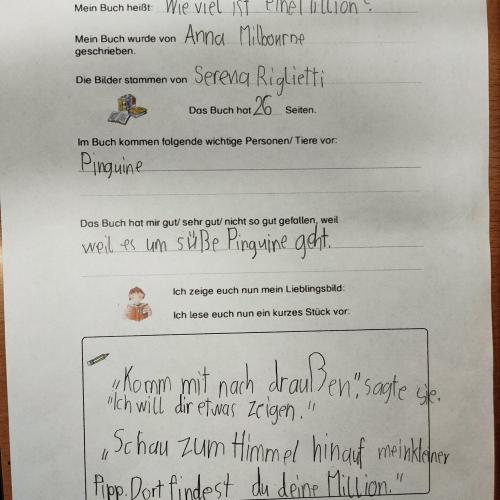 Mein Buch heißt: Wie viel ist eine Million?
Mein Buch wurde von Anna Milbourne
geschrieben.
Die Bilder stammen von Serena Riglietti
Das Buch hat 26 Seiten.
Im Buch kommen folgende wichtige Personen/ Tiere vor:
Pinguine
Das Buch hat mir gut/ sehr gut/ nicht so gut gefallen, weil
weil es um süße Pinguine geht.
Ich zeige euch nun mein Lieblingsbild:
Ich lese euch nun ein kurzes Stück vor:
„Komm mit nach draußen", sagte sie.
"Ich will dir etwas zeigen."
„Schau zum Himmel hinauf mein kleiner
Pipp. Dort findest du deine Million."